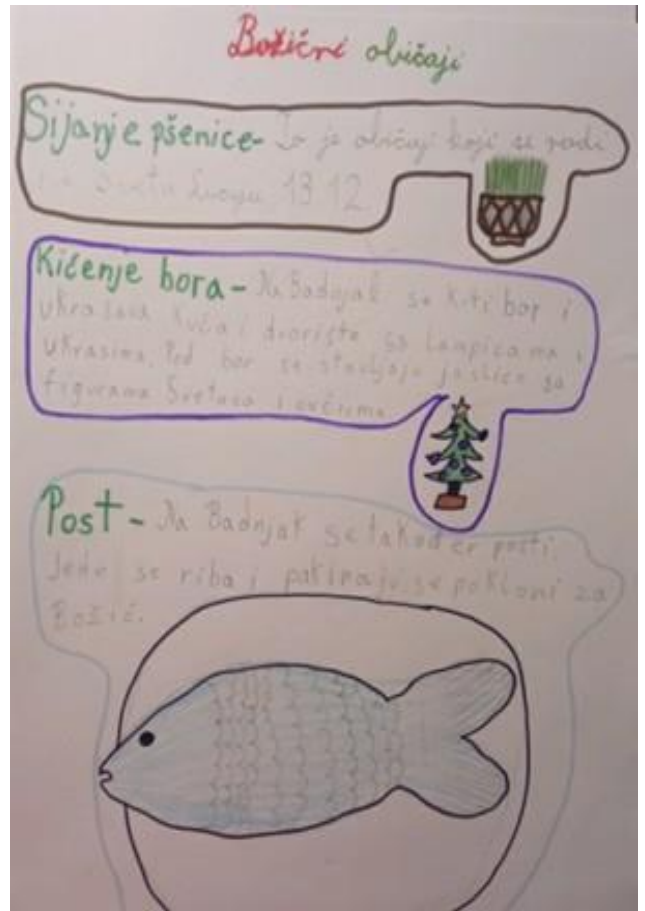 Božićni običaji
Sijanje pšenice- To je običaj koji se radi
na Svetu Luciju 13.12.
Kićenje bora- Na Badnjak se kiti bor i
ukrasava kuća i dvorište sa lampicama i
ukrasima. Pod bor se stavljaju jaslice sa
figurama Svetaca i ovčicama
Post- Na Badnjak se također posti.
Jede se riba i pakiraju se pokloni za
Božić.